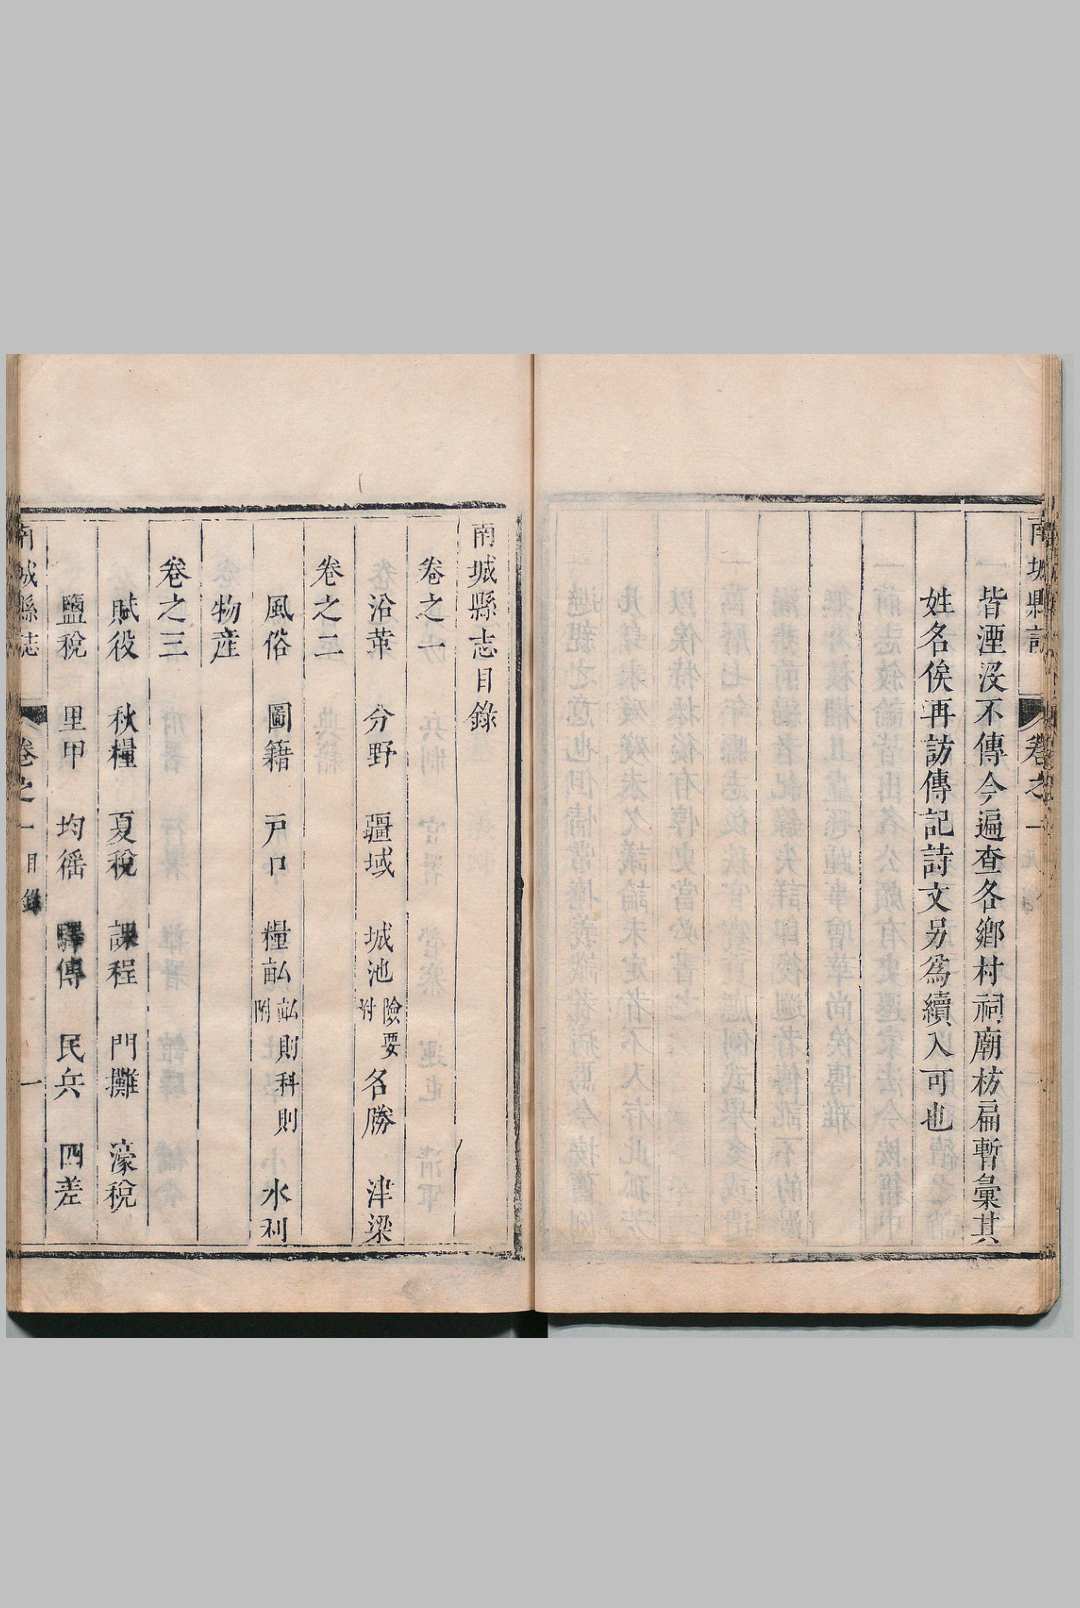 皆湮沒不傳今遍查各鄉村祠廟枋扁暫彙其
姓名俟再訪傳記詩文另為續入可也
南城縣志目錄
卷之一
沿革 分野 疆域 城池 險要附 名勝 津梁
卷之二
風俗 圖籍 戸口 糧畝 畝則科則附 水利
物産
卷之三
賦役 秋糧 夏稅 課程 門攤 濠稅
鹽稅 里甲 均徭 驛傳 民兵 四差
南城縣誌 卷之一 目錄 一